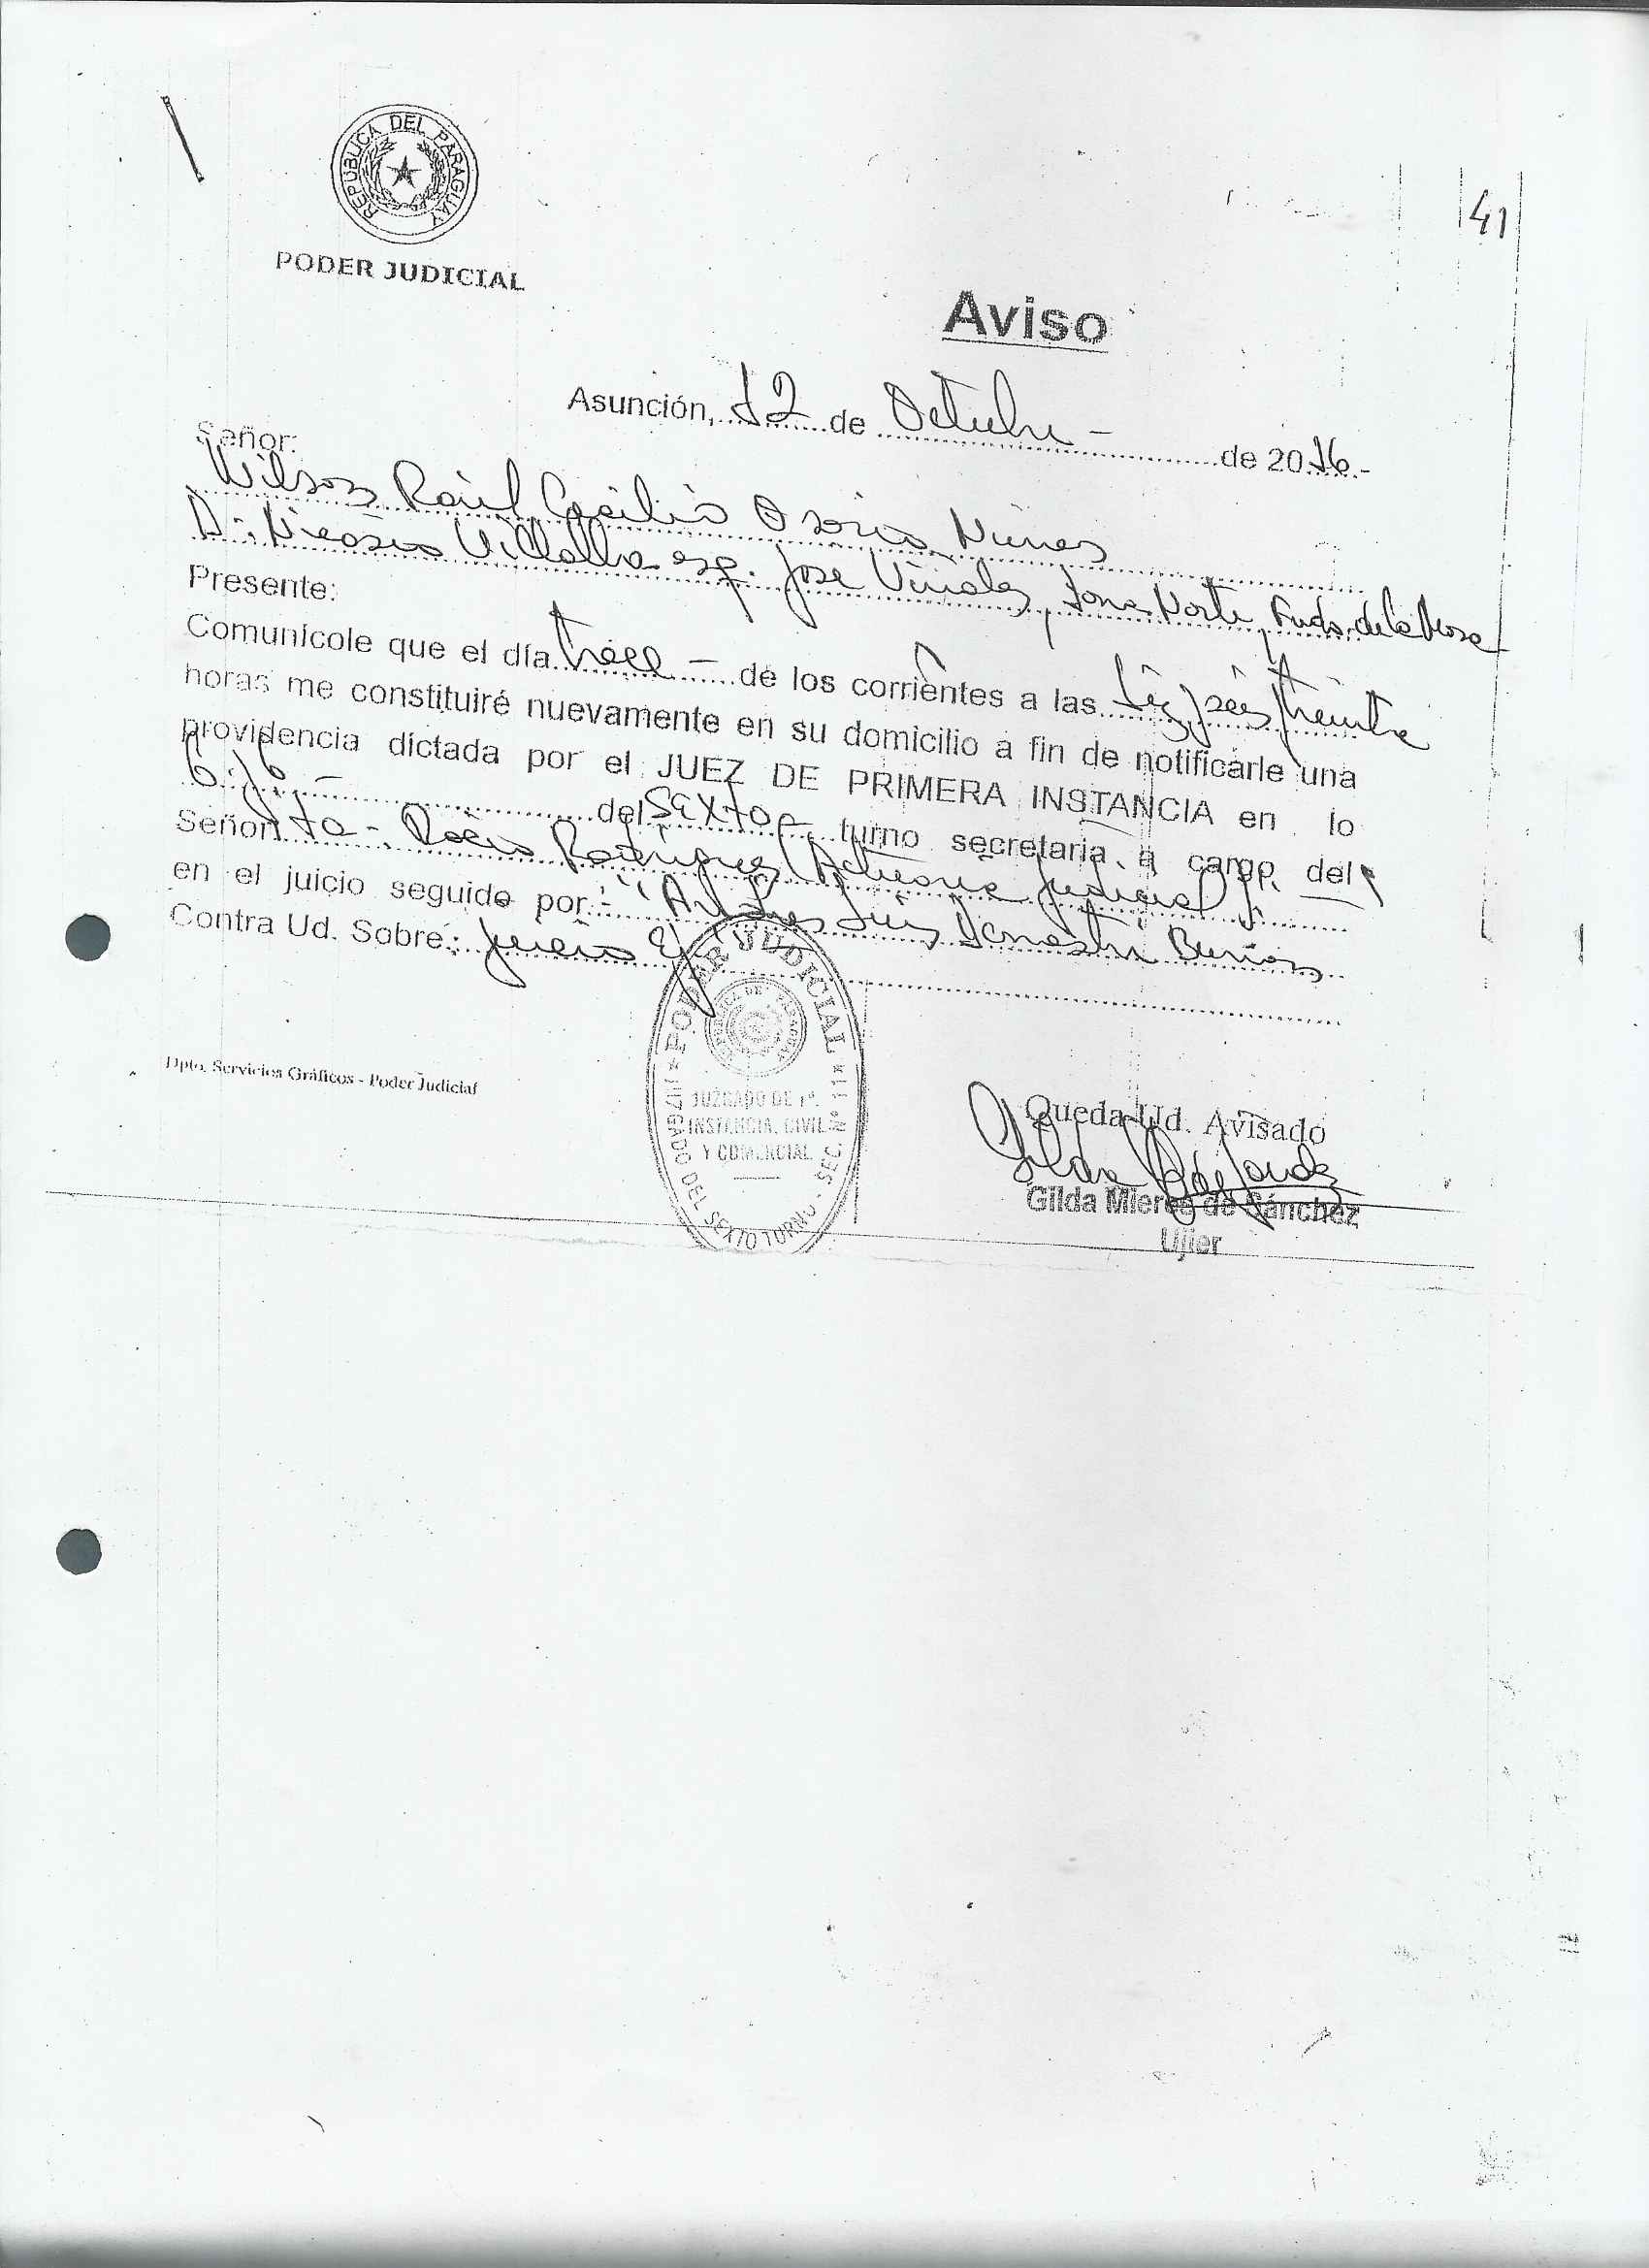 REPUBLICA DEL PARAGUAY
PODER JUDICIAL
41
Aviso
Asunción, 12 de Octubre - de 2016.-
Señor:
Wilson Raúl Cecilio Osorio Núnes
D: Nicasio Villalba esq. Jose Viñales, Zona Norte, Fndo. de la Mora
Presente:
Comunícole que el día trece - de los corrientes a las diez seis treinta
horas me constituiré nuevamente en su domicilio a fin de notificarle una
providencia dictada por el JUEZ DE PRIMERA INSTANCIA en lo
Civil - del Sexto turno secretaria a cargo del
Señor: Rocío Rodríguez (Actuaria Judicial)
en el juicio seguido por:- "Andres Luis Burios
Contra Ud. Sobre: Juicio Ej
PODER JUDICIAL
JUZGADO DE 1ª.
INSTANCIA, CIVIL
Y COMERCIAL
JUZGADO DEL SEXTO TURNO - SEC. Nº 11
Dpto. Servicios Gráficos - Poder Judicial
Queda Ud. Avisado
Gilda Mieres de Sánchez
Ujier